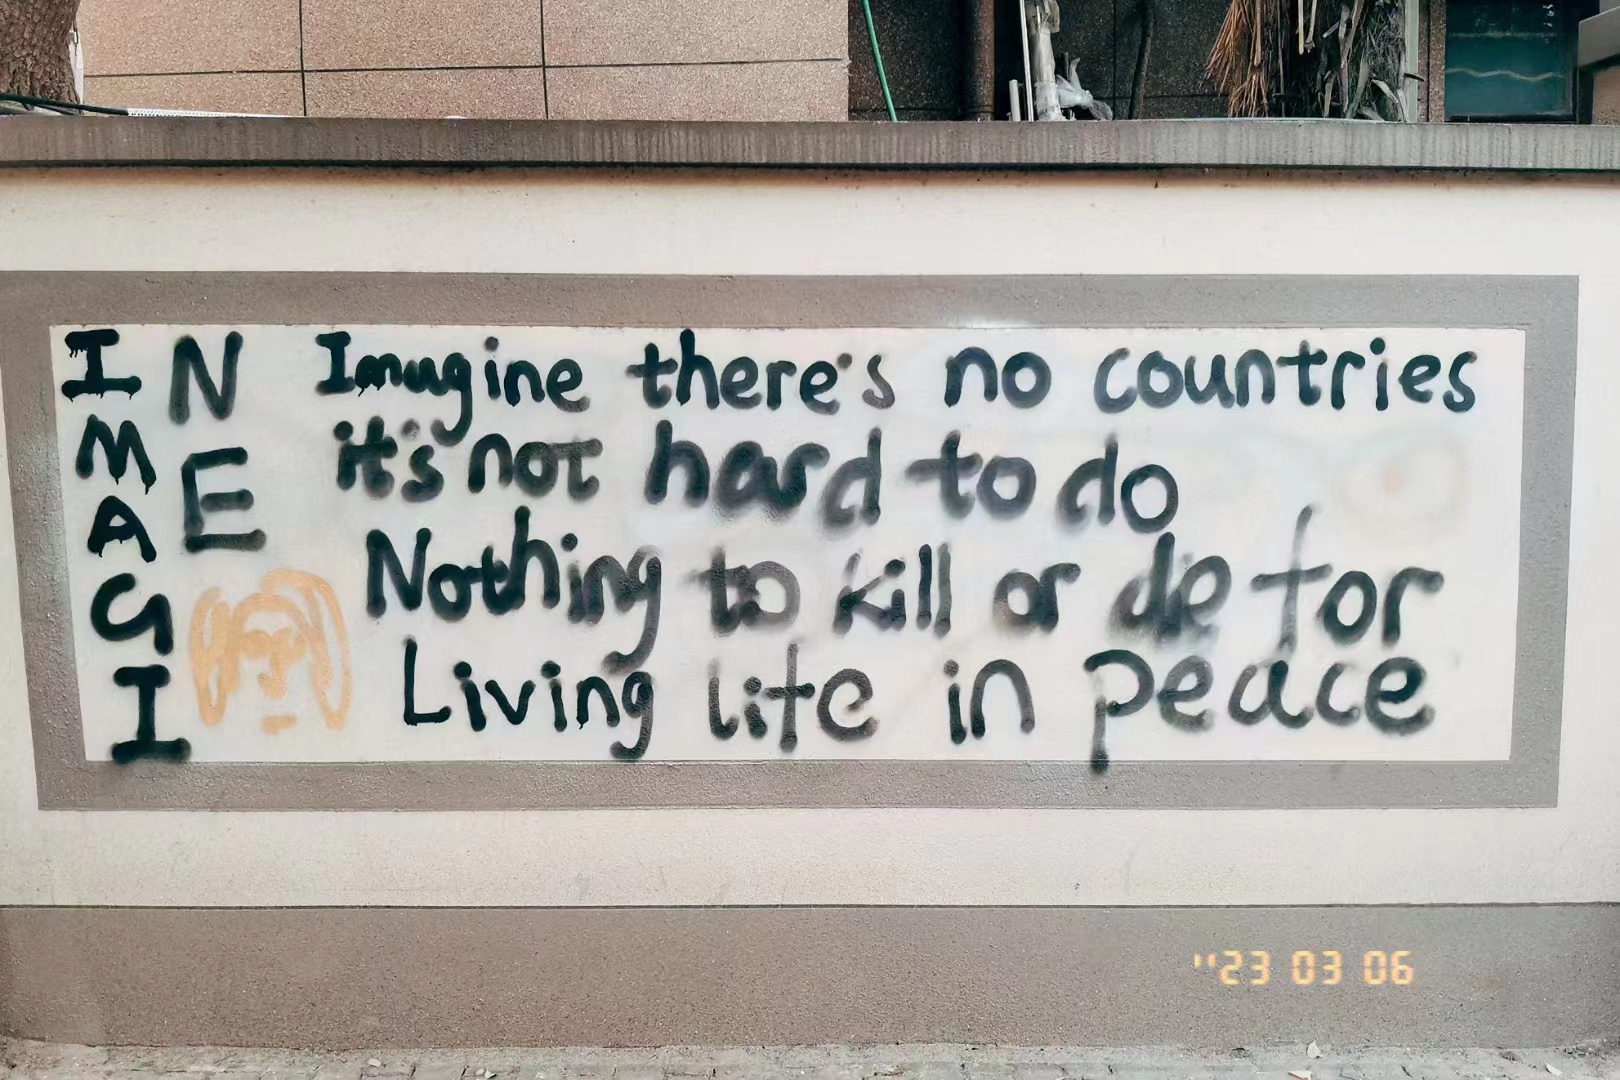 IMAGI
NE
Imagine there's no countries
it's not hard to do
Nothing to kill or de for
Living life in peace
"23 03 06